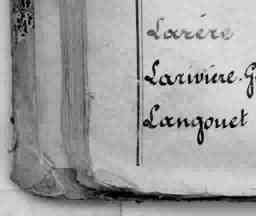 Larère
Larivière. G
Langouet